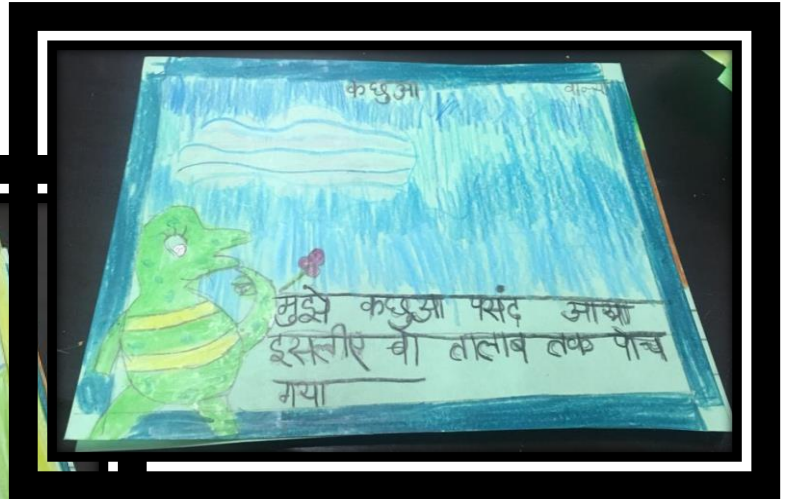 कछुआ
मुझे कछुआ पसंद आया
इसलीए वो तालाब तक पोच
गया